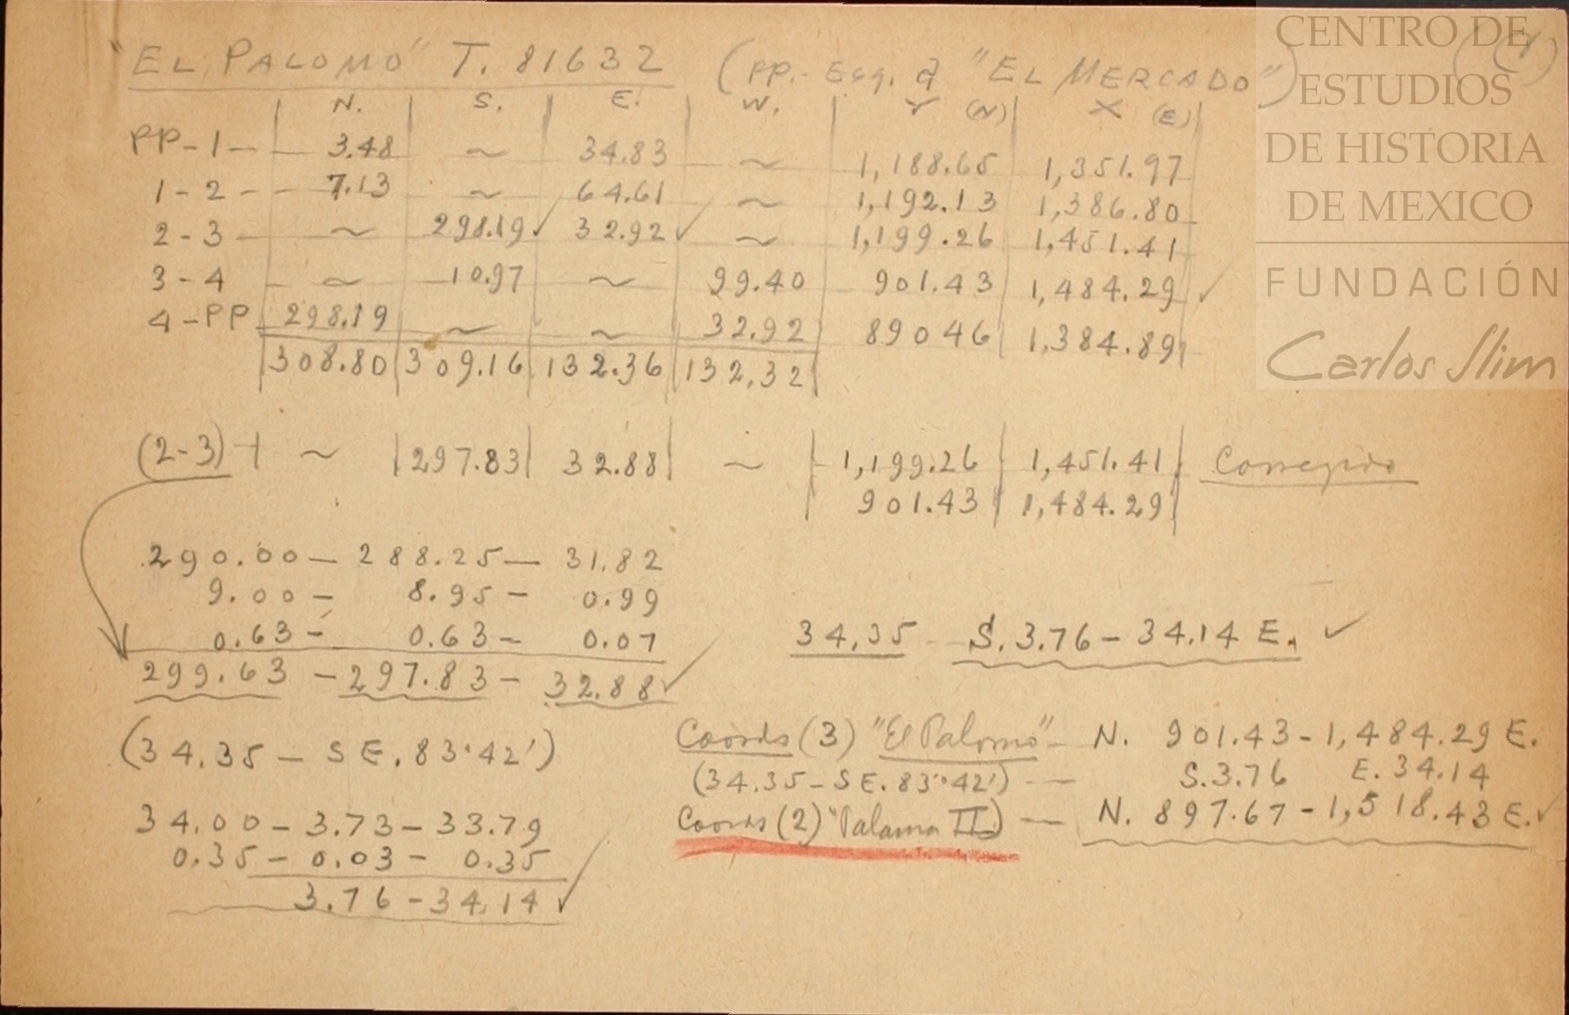 "EL PALOMO" T. 81632 (PP.- Esq. d "EL MERCADO") (1)
N. S. E. W. Y (N) X (E)
PP-1 - 3.48 ~ 34.83 ~ 1,188.65 1,351.97
1-2 - 7.13 ~ 64.61 ~ 1,192.13 1,386.80
2-3 - ~ 298.19 ✓ 32.92 ✓ ~ 1,199.26 1,451.41
3-4 - ~ 10.97 ~ 99.40 901.43 1,484.29 ✓
4-PP 298.19 ~ ~ 32.92 89046 1,384.89
308.80 309.16 132.36 132.32
(2-3) ~ 297.83 32.88 ~ 1,199.26 1,451.41 Corregido
901.43 1,484.29
290.00 - 288.25 - 31.82
9.00 - 8.95 - 0.99
0.63 - 0.63 - 0.07
299.63 - 297.83 - 32.88 ✓
34.35 S. 3.76 - 34.14 E. ✓
(34.35 - SE. 83°42')
34.00 - 3.73 - 33.79
0.35 - 0.03 - 0.35
3.76 - 34.14 ✓
Coords (3) "El Palomo" - N. 901.43 - 1,484.29 E.
(34.35 - SE. 83°42') - S. 3.76 E. 34.14
Coords (2) "Paloma II") - N. 897.67 - 1,518.43 E. ✓
CENTRO DE
ESTUDIOS
DE HISTORIA
DE MEXICO
FUNDACIÓN
Carlos Slim